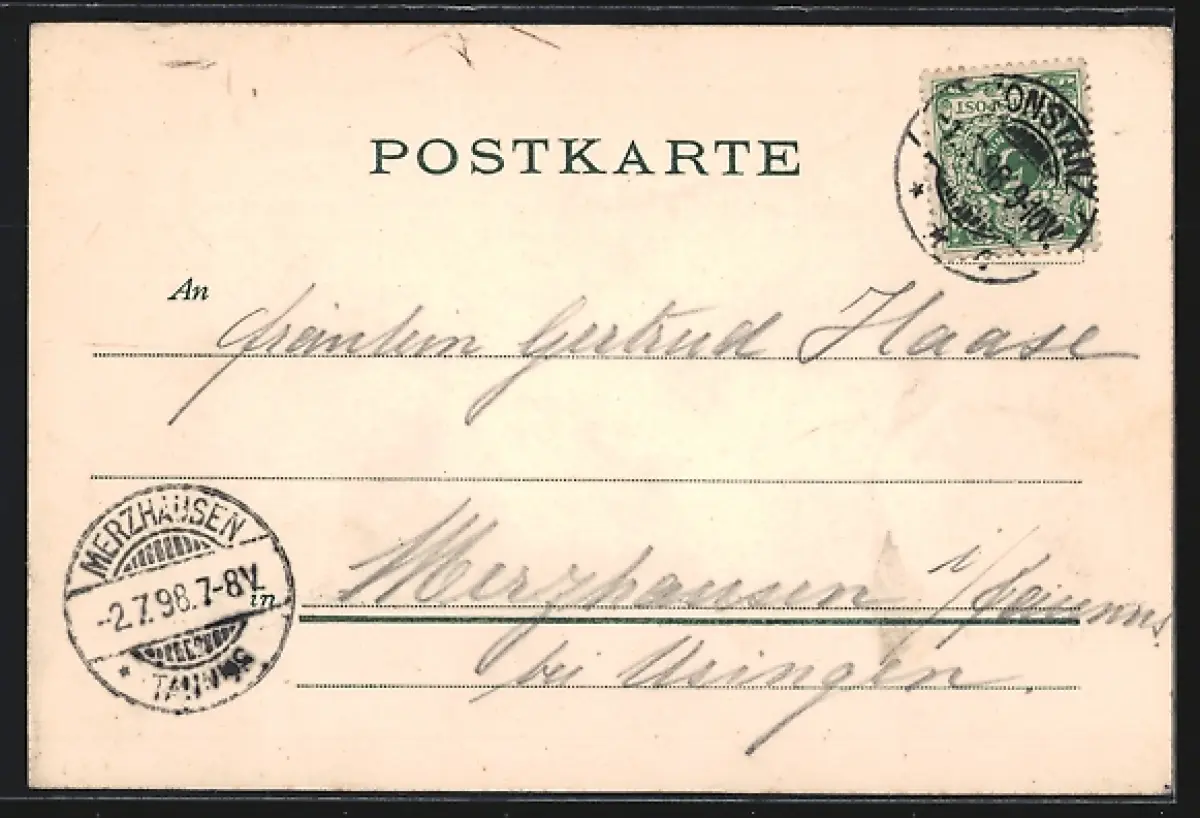 POSTKARTE
POST
KONSTANZ
98.9-10N.
An
Fräulein Gertrud Haase
MERZHAUSEN
-2.7.98.7-8V.
TAUNUS
in
Merzhausen i/Taunus
bei Usingen.